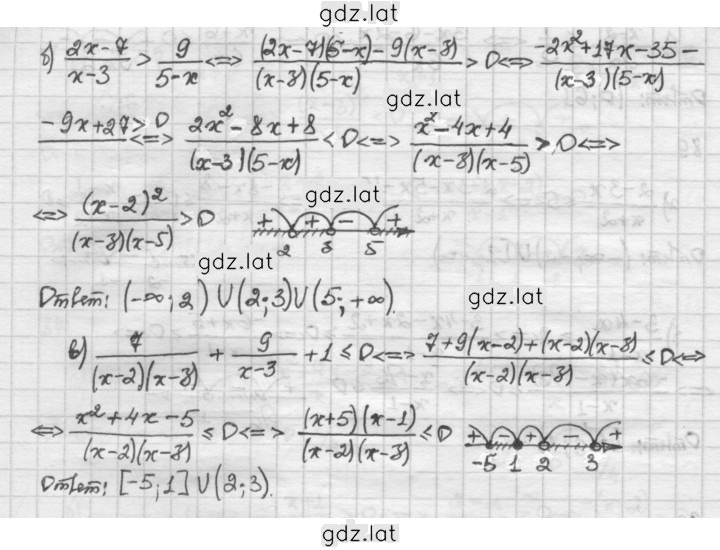 gdz.lat
б) (2x-7)/(x-3) > 9/(5-x) <=> ((2x-7)(5-x)-9(x-3))/((x-3)(5-x)) > 0 <=> (-2x²+17x-35-)/((x-3)(5-x))
gdz.lat
(-9x+27)/ > 0 <=> (2x²-8x+8)/((x-3)(5-x)) < 0 <=> (x²-4x+4)/((x-3)(x-5)) > 0 <=>
gdz.lat
<=> (x-2)²/((x-3)(x-5)) > 0 + + - + 2 3 5
gdz.lat
Ответ: (-∞; 2) ∪ (2; 3) ∪ (5; +∞).
gdz.lat
в) 7/((x-2)(x-3)) + 9/(x-3) + 1 ≤ 0 <=> (7+9(x-2)+(x-2)(x-3))/((x-2)(x-3)) ≤ 0 <=>
<=> (x²+4x-5)/((x-2)(x-3)) ≤ 0 <=> ((x+5)(x-1))/((x-2)(x-3)) ≤ 0 + - + - + -5 1 2 3
Ответ: [-5; 1] ∪ (2; 3).
gdz.lat